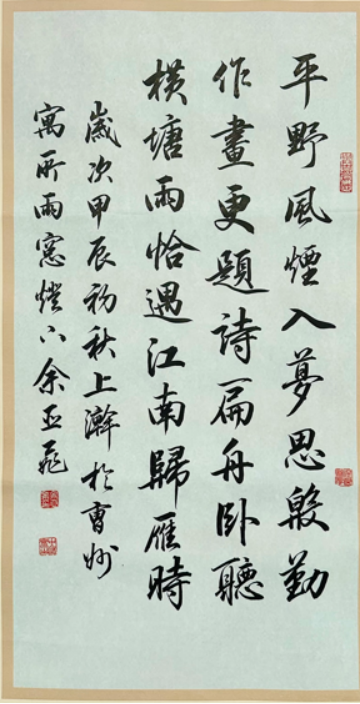 平野風煙入夢思殷勤
作畫更題詩扁舟卧聽
橫塘雨恰遇江南歸雁時
歲次甲辰初秋上澣於曹州
寓所雨窗燈下余亞飛